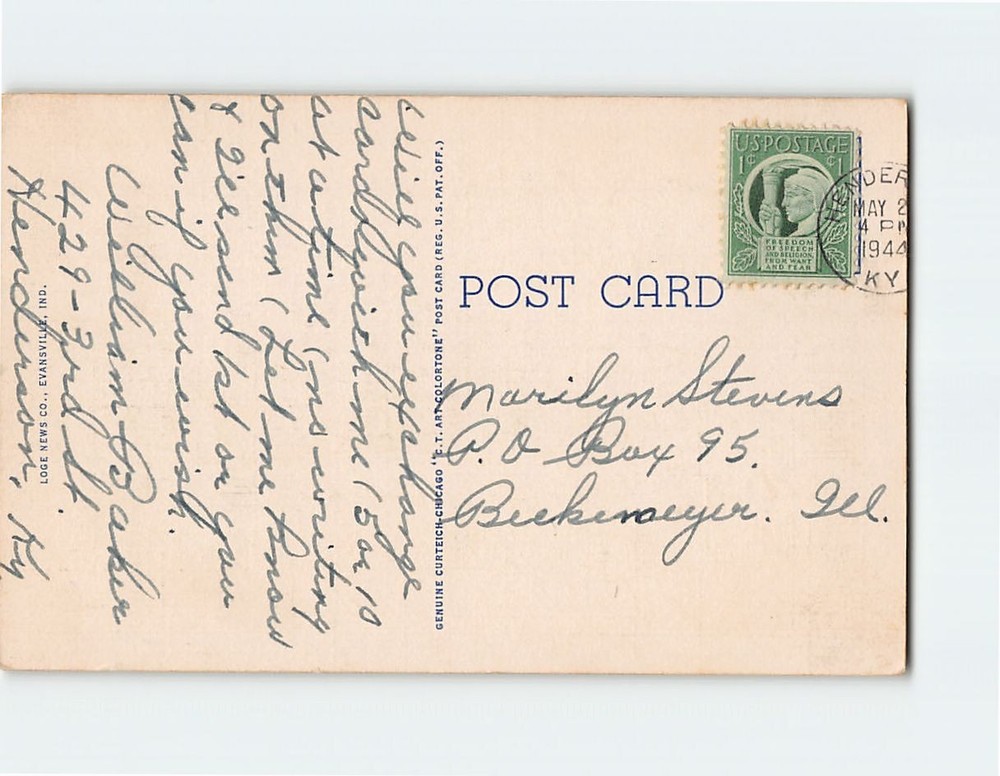 Will you exchange
cards with me (5 or 10
at a time (no writing
on them (Let me know
& I'll send 1st or you
can if you wish.
William Baker
429-3rd St.
Henderson, Ky
LOGE NEWS CO., EVANSVILLE, IND.
GENUINE CURTEICH-CHICAGO "C.T. ART-COLORTONE" POST CARD (REG. U.S. PAT. OFF.)
POST CARD
U.S. POSTAGE
1¢ 1¢
FREEDOM
OF SPEECH
AND RELIGION,
FROM WANT
AND FEAR
HENDER
MAY 2
4 PM
1944
KY
Marilyn Stevens
P.O Box 95.
Beckemeyer. Ill.